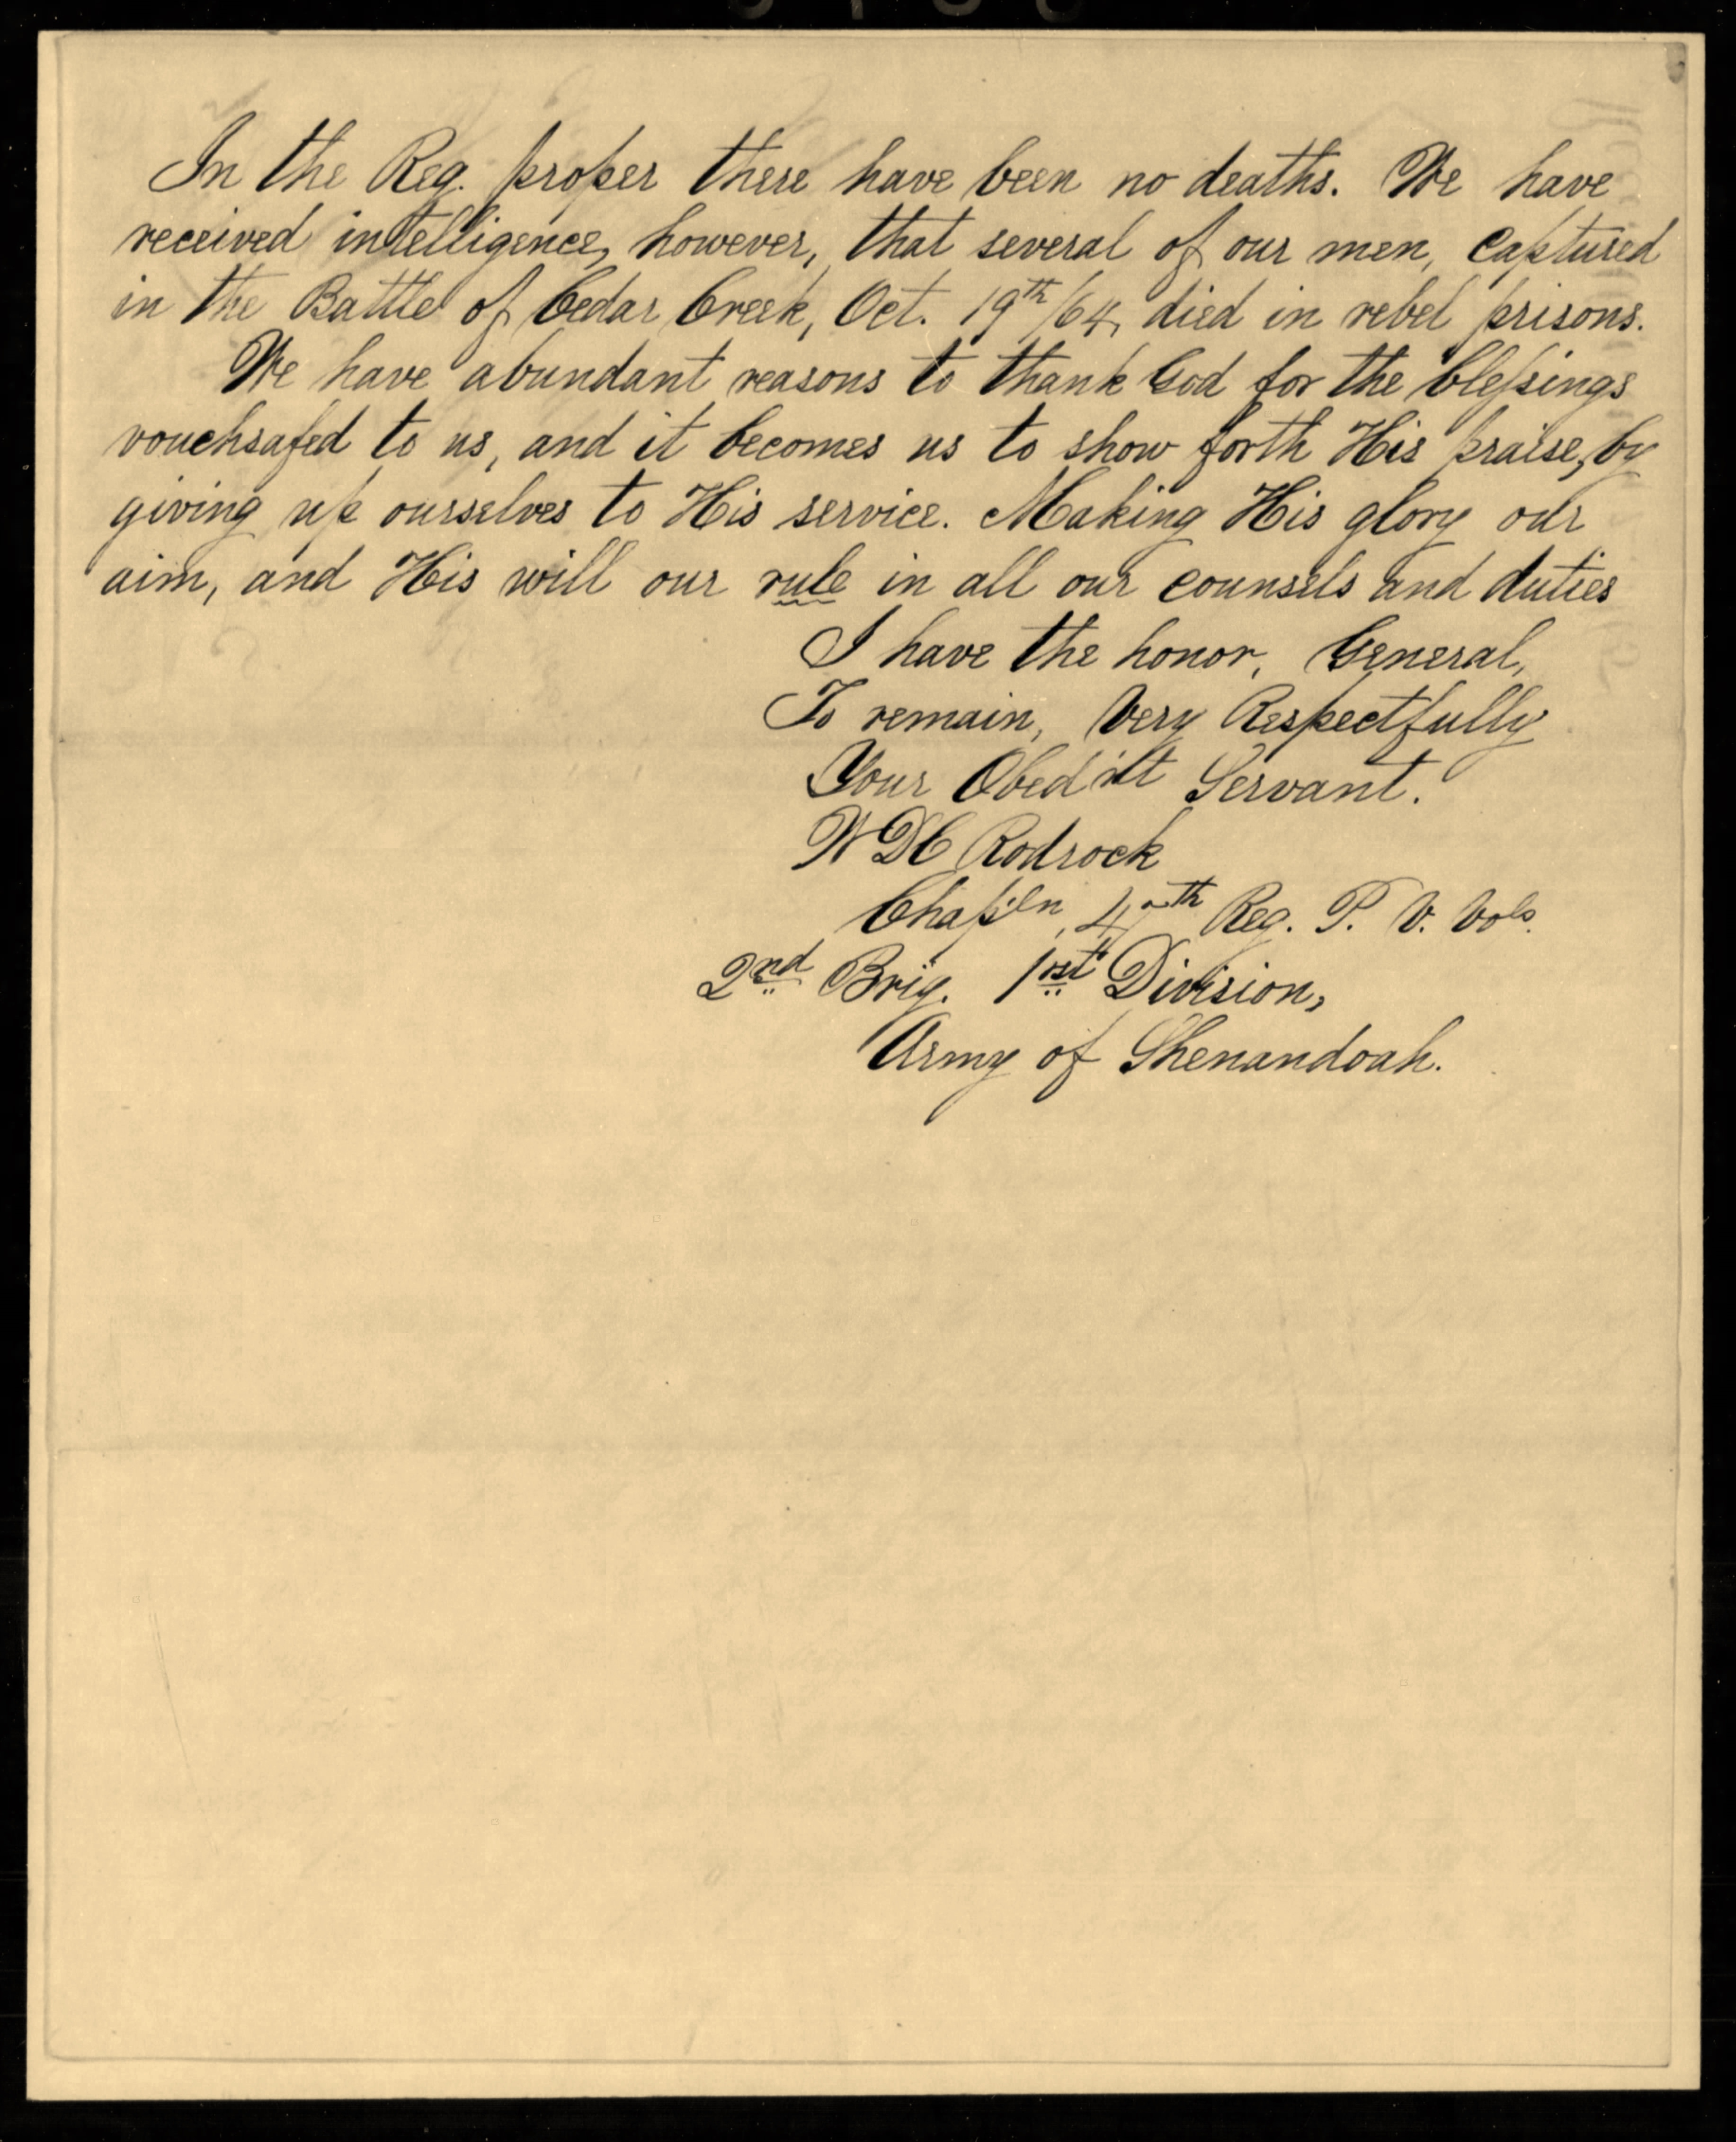 In the Reg. proper there have been no deaths. We have
received intelligence, however, that several of our men, captured
in the Battle of Cedar Creek, Oct. 19th/64, died in rebel prisons.
We have abundant reasons to thank God for the blessings
vouchsafed to us, and it becomes us to show forth His praise, by
giving up ourselves to His service. Making His glory our
aim, and His will our rule in all our counsels and duties
I have the honor, General,
To remain, Very Respectfully
Your Obed'nt Servant.
W DC Rodrock
Chap'ln, 47th Reg. P. V. Vols.
2nd Brig. 1st Division,
Army of Shenandoah.